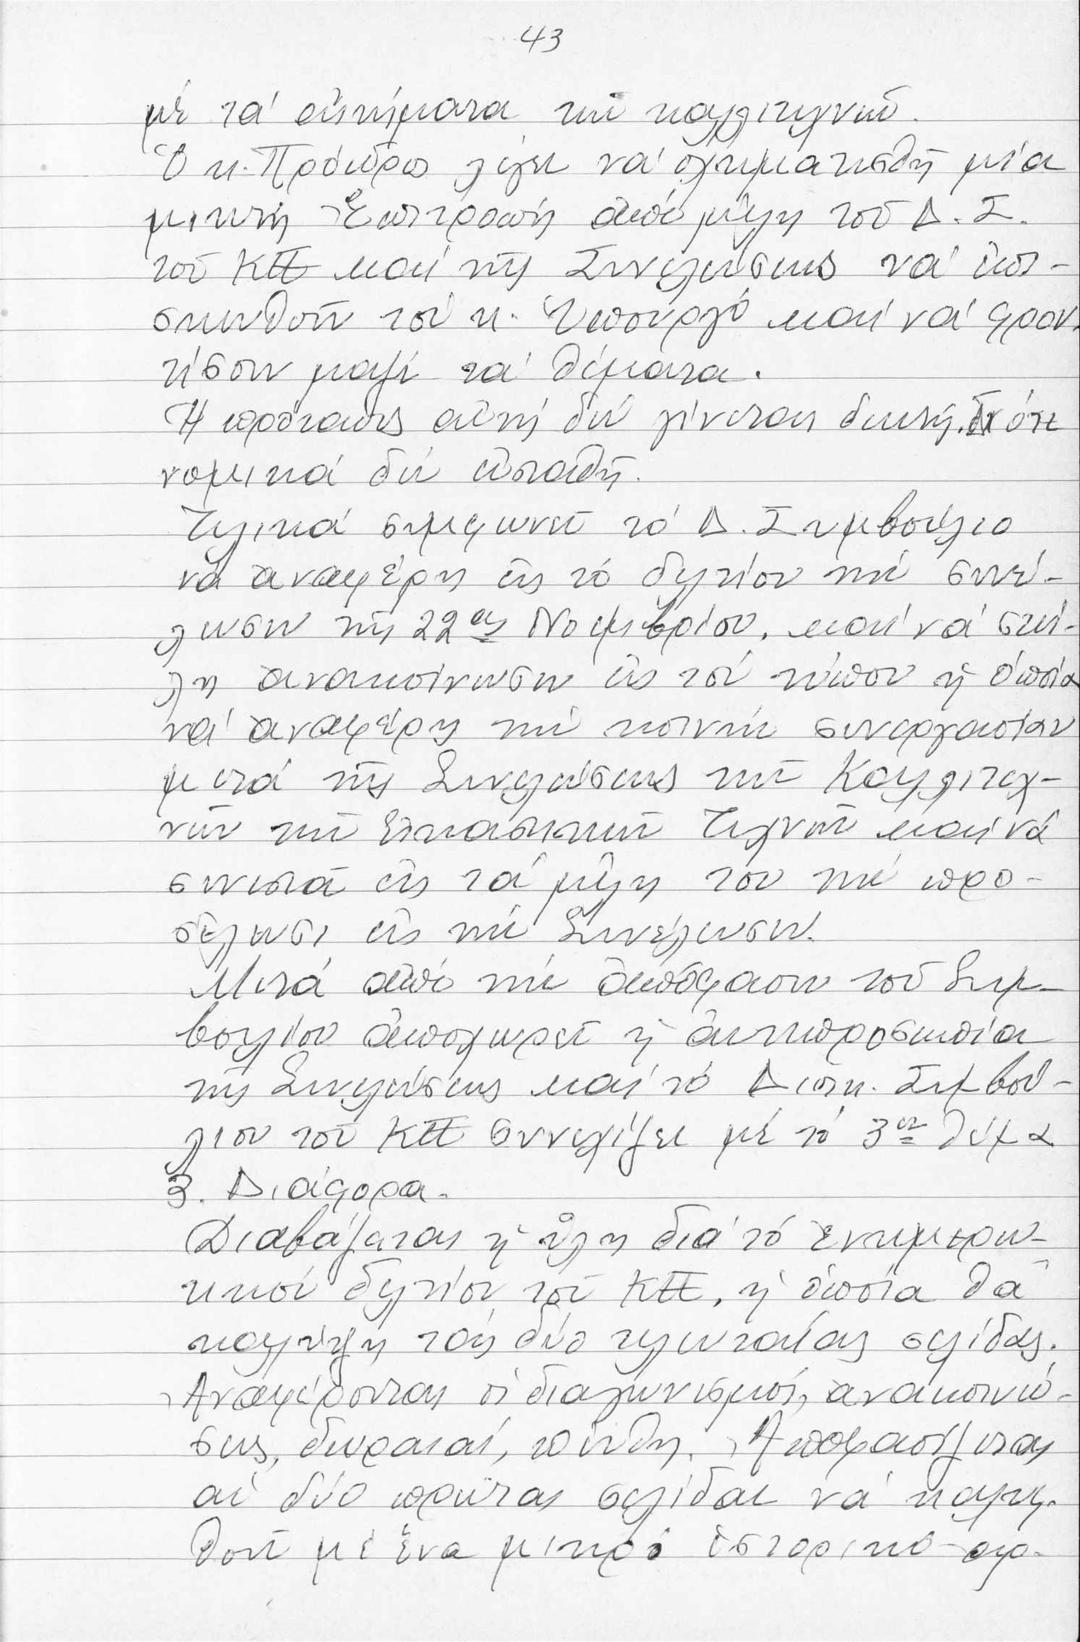 43
μέ τά αἰτήματα τῶν καλλιτεχνῶν.
Ὁ κ. Πρόεδρος λέγει νά σχηματισθῆ μία
μικτή Ἐπιτροπή ἀπό μέλη τοῦ Δ. Σ.
τοῦ ΚΠ καί τῆς Συνελεύσεως νά ἐπι-
σκεφθοῦν τόν κ. Ὑπουργό καί νά φρον
τίσουν μαζί τά θέματα.
Ἡ πρότασις αὐτή δέν γίνεται δεκτή, διότι
νομικά δέν εὐσταθῆ.
Τελικά συμφωνεῖ τό Δ. Συμβούλιο
νά ἀναφέρη εἰς τό δελτίον τήν συνέ-
λευσιν τῆς 22ας Νοεμβρίου, καί νά στεί-
λη ἀνακοίνωσιν εἰς τόν τύπον ἡ ὁποία
νά ἀναφέρη τήν κοινήν συνεργασίαν
μετά τῆς Συνελεύσεως τῶν Καλλιτεχ-
νῶν τῶν Εἰκαστικῶν Τεχνῶν καί νά
συνιστᾶ εἰς τά μέλη του τήν προ-
σέλευσι εἰς τήν Συνέλευσιν.
Μετά ἀπό τήν ἀπόφασιν τοῦ Συμ-
βουλίου ἀποχωρεῖ ἡ ἀντιπροσωπεία
τῆς Συνελεύσεως καί τό Διοικ. Συμβού-
λιον τοῦ ΚΠ συνεχίζει μέ τό 3ον θέμα
3. Διάφορα.
Διαβάζεται ἡ ὕλη διά τό ἐνημερω-
τικόν δελτίον τοῦ ΚΠ, ἡ ὁποία θά
καλύψη τάς δύο τελευταίας σελίδας.
Ἀναφέρονται οἱ διαγωνισμοί, ἀνακοινώ-
σεις, δωρεαί, πένθη. Ἀποφασίζεται
αἱ δύο πρῶται σελίδαι νά καλυ-
φθοῦν μέ ἕνα μικρό ἱστορικό ἀρ-